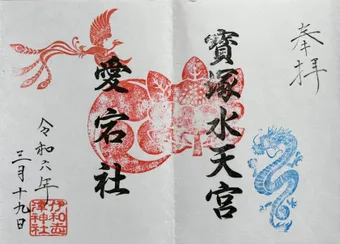 奉拝
寶塚水天宮
愛宕社
令和六年
三月十九日
伊和志
津神社